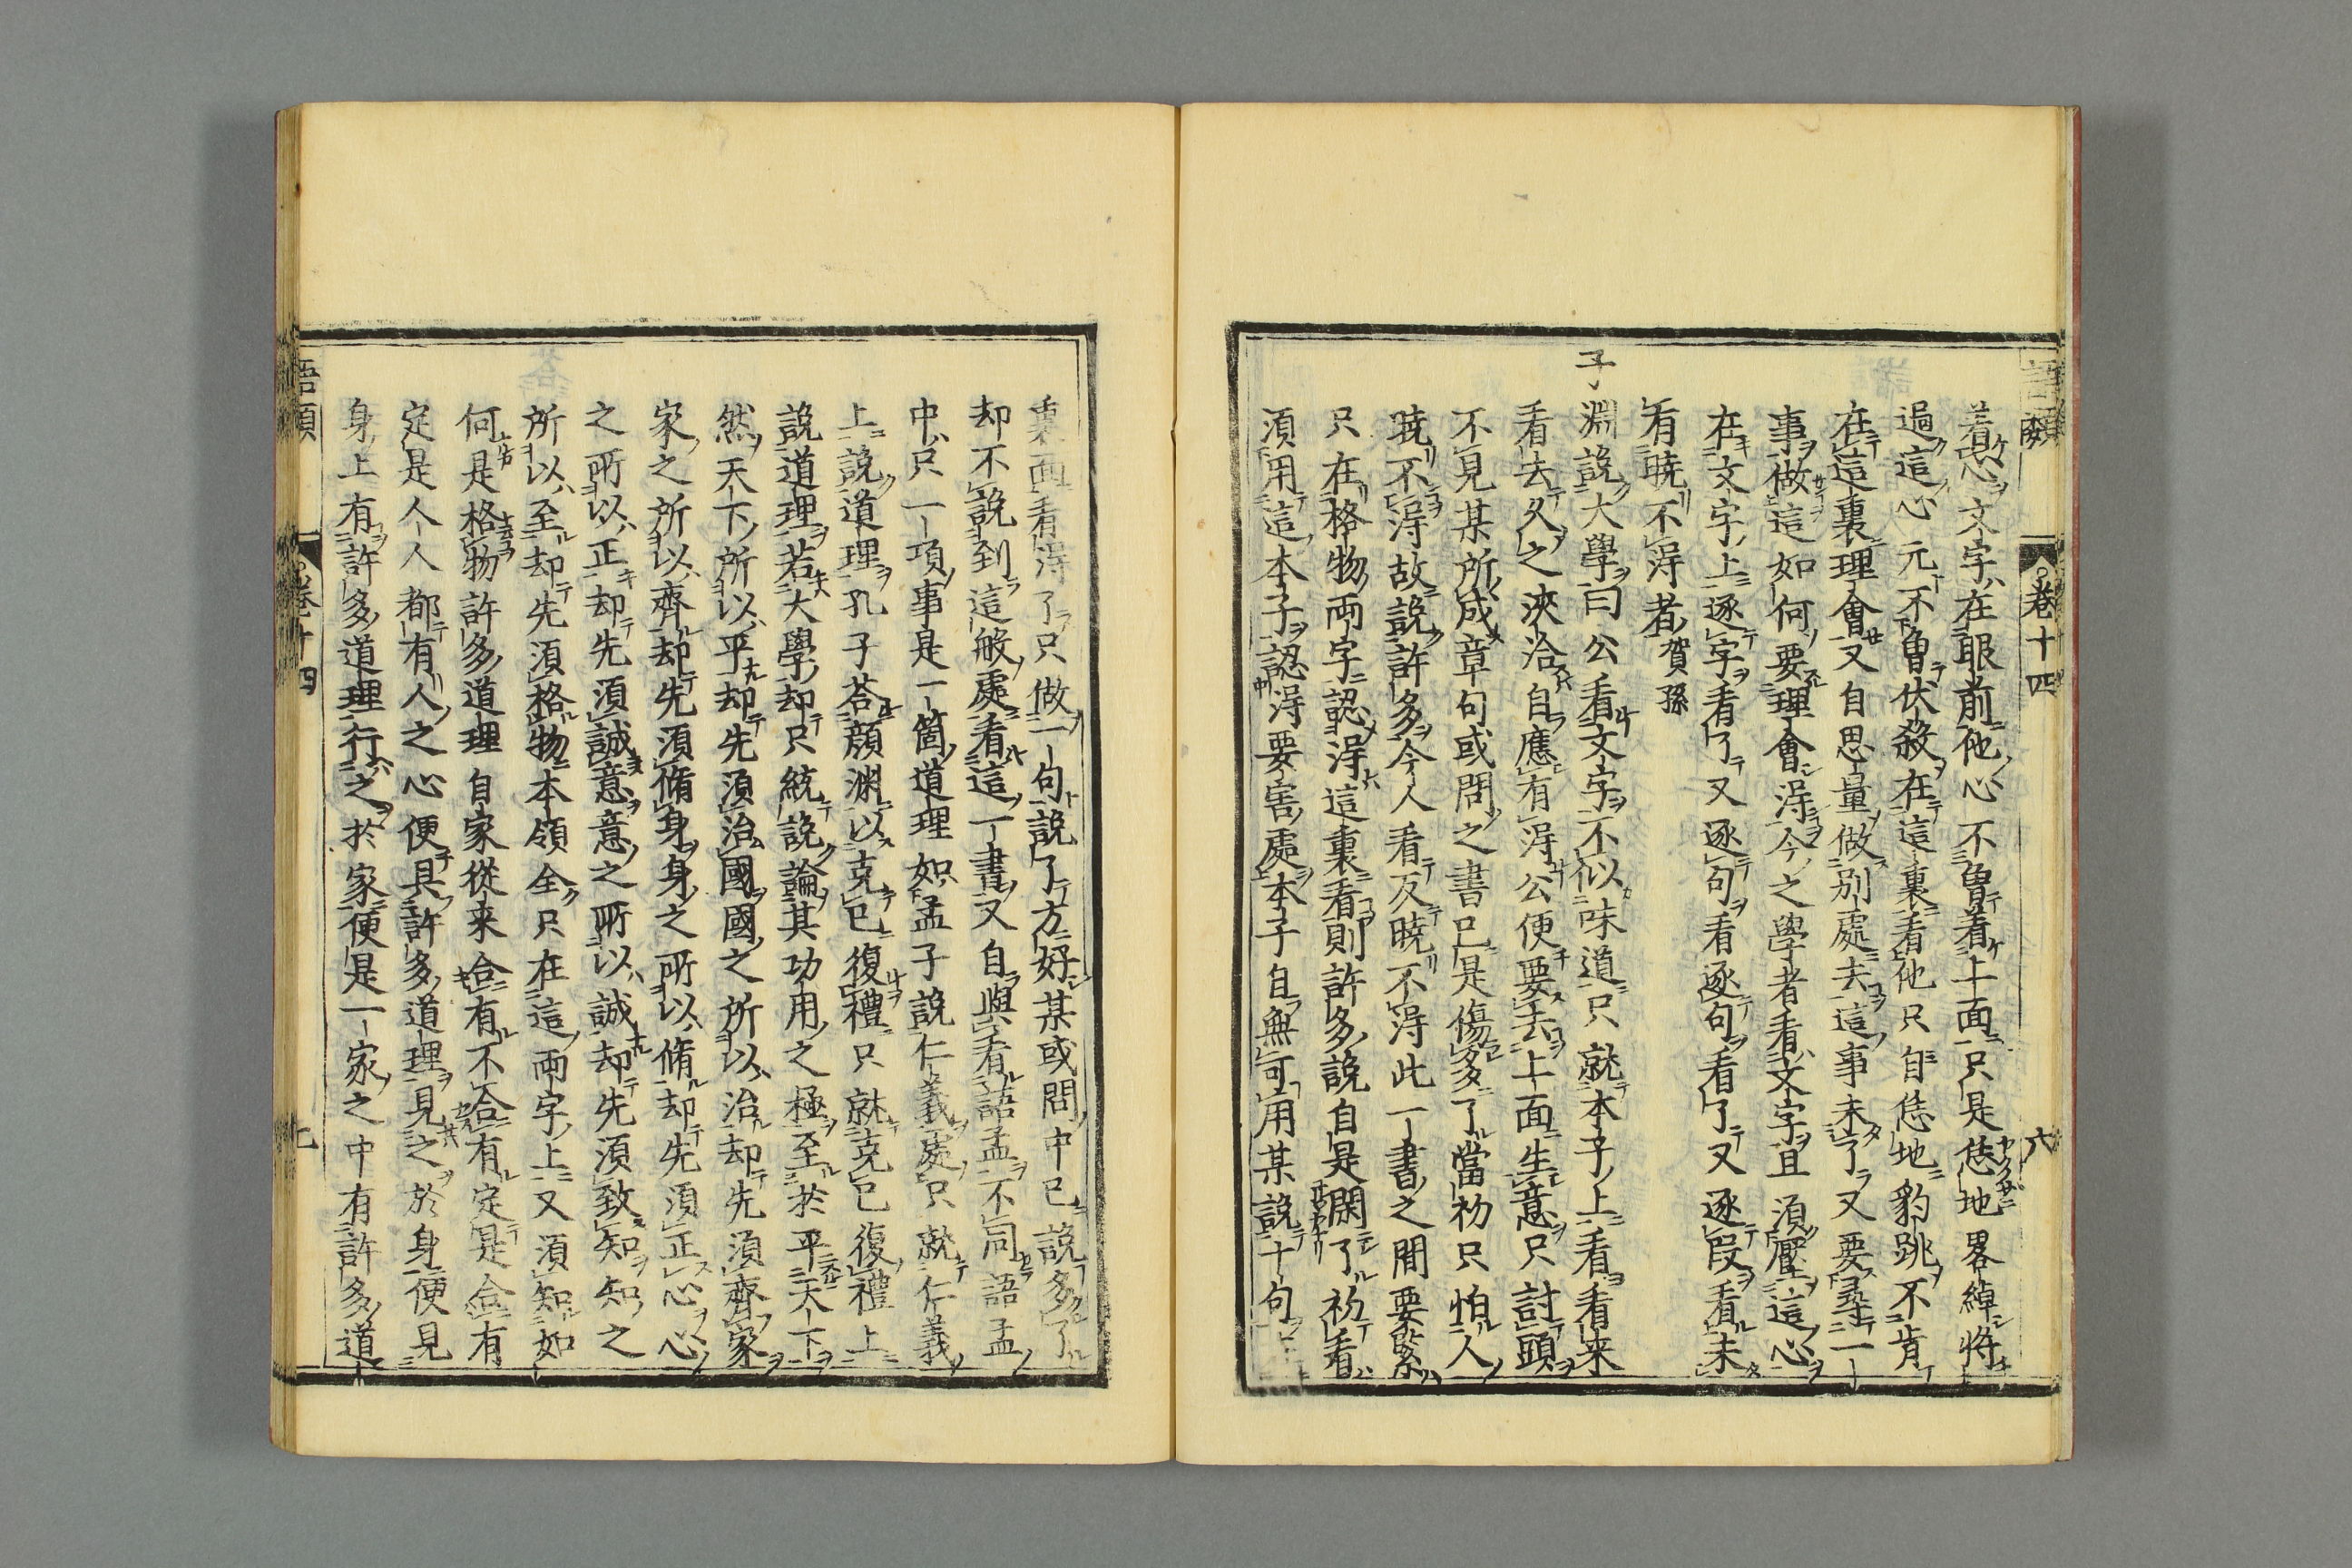 語類 卷十四 六
着心文字在眼前他心不曾着上面只是恁地畧綽將
過這心元不曾伏殺在這裏看他只自恁地豹跳不肯
在這裏理會又自思量做別處去這事未了又要尋一
事做這如何要理會淂今之學者看文字且須壓這心
在文字上逐字看了又逐句看逐句看了又逐段看未
有曉不淂者賀孫
子淵說大學曰公看文字不似味道只就本子上看看来
看去久之浹洽自應有淂公便要去上面生意只討頭
不見某所成章句或問之書已是傷多了當初只怕人
曉不淂故說許多今人看反曉不淂此一書之間要緊
只在格物兩字認淂這裏看則許多說自是閑了初看
須用這本子認淂要害處本子自無可用某說十句
裏面看淂了只做一句說了方好某或問中已說多了
却不說到這般處看這一書又自與看語孟不同語孟
中只一項事是一箇道理如孟子說仁義處只就仁義
上說道理孔子荅顏渊以克己復禮只就克己復禮上
說道理若大學却只統說論其功用之極至於平天下
然天下所以平却先須治國國之所以治却先須齊家
家之所以齊却先須脩身身之所以脩却先須正心心
之所以正却先須誠意意之所以誠却先須致知知之
所以至却先須格物本領全只在這兩字上又須知如
何是格物許多道理自家從来合有不合有定是合有
定是人人都有人之心便具許多道理見之於身便見
身上有許多道理行之於家便是一家之中有許多道
語類 卷十四 七